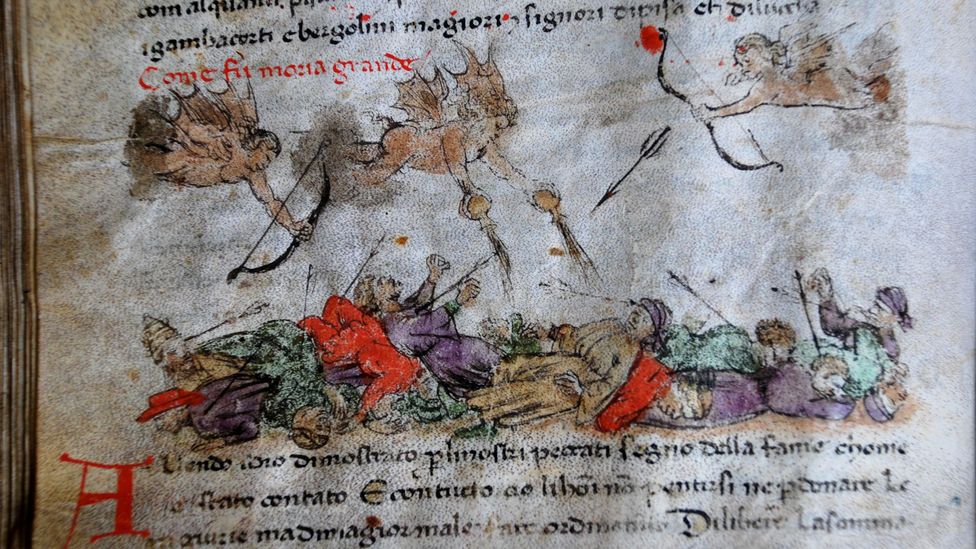 com alquanti
igambacorti e bergolini magiori, signori dipisa et dilucha
Come fu moria grande
Avendo idio dimostrato p linostri peccati segno della fame chome
e stato contato E contucto cio lihōi nō pentirsi ne pdonare le
iniurie madimagior male fare Dilibero lasomma